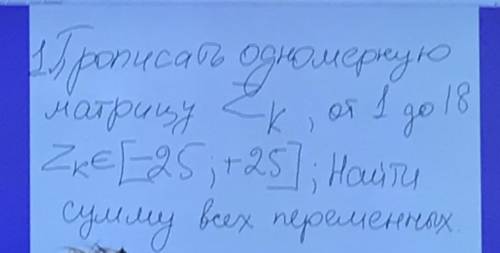 1. Прописать одномерную
матрицу Zк, от 1 до 18
Zк∈[-25;+25]; Найти
сумму всех переменных.